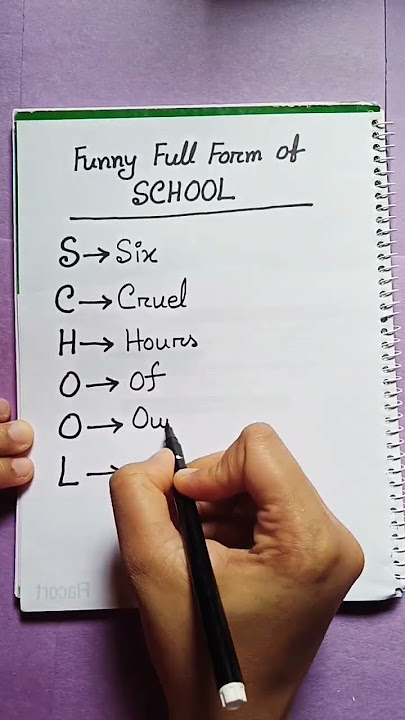 Funny Full Form of
SCHOOL
S → Six
C → Cruel
H → Hours
O → Of
O → Ou
L →
Flacort